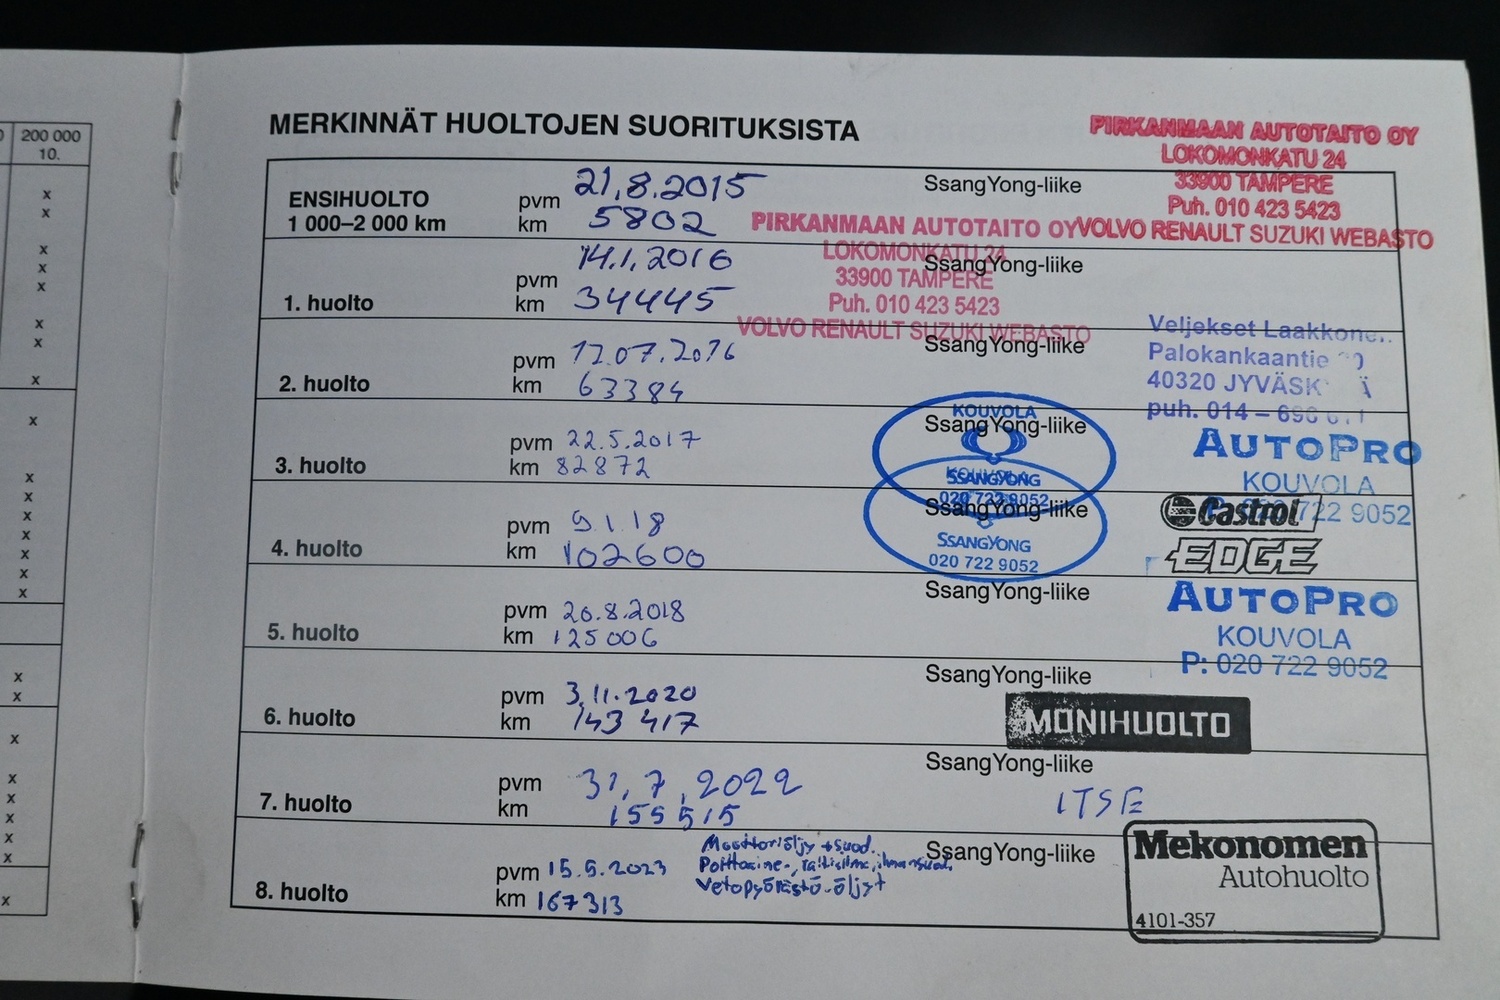 200 000
10.
x
x
x
x
x
x
x
x
x
x
x
x
x
x
x
x
x
x
x
x
x
x
x
x
x
MERKINNÄT HUOLTOJEN SUORITUKSISTA
PIRKANMAAN AUTOTAITO OY
LOKOMONKATU 24
33900 TAMPERE
Puh. 010 423 5423
VOLVO RENAULT SUZUKI WEBASTO
ENSIHUOLTO
1 000–2 000 km
pvm 21.8.2015
km 5802
SsangYong-liike
PIRKANMAAN AUTOTAITO OY
LOKOMONKATU 24
33900 TAMPERE
Puh. 010 423 5423
VOLVO RENAULT SUZUKI WEBASTO
1. huolto
pvm 14.1.2016
km 34445
SsangYong-liike
2. huolto
pvm 12.07.2016
km 63384
SsangYong-liike
Veljekset
Palokankaantie
40320
puh. 014 –
3. huolto
pvm 22.5.2017
km 82872
SsangYong-liike
KOUVOLA
SSANGYONG
020 722 9052
AUTOPRO
KOUVOLA
722 9052
4. huolto
pvm 9.1.18
km 102600
SsangYong-liike
KOUVOLA
SSANGYONG
020 722 9052
Castrol
EDGE
5. huolto
pvm 20.8.2018
km 125006
SsangYong-liike
AUTOPRO
KOUVOLA
P: 020 722 9052
6. huolto
pvm 3.11.2020
km 143 417
SsangYong-liike
MONIHUOLTO
7. huolto
pvm 31.7.2022
km 155515
SsangYong-liike
ITSE
8. huolto
pvm 15.5.2023
km 167313
Moottoriöljy + suod.
Polttoaine-, raitisilma, ilmansuod.
Vetopyörästö-öljyt
SsangYong-liike
Mekonomen
Autohuolto
4101-357